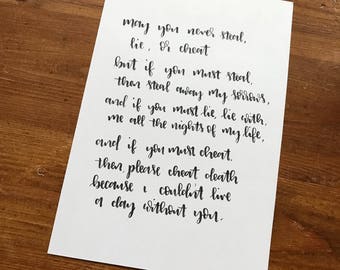 may you never steal,
lie, or cheat
but if you must steal,
then steal away my sorrows,
and if you must lie, lie with
me all the nights of my life,
and if you must cheat,
then please cheat death
because i couldn't live
a day without you.